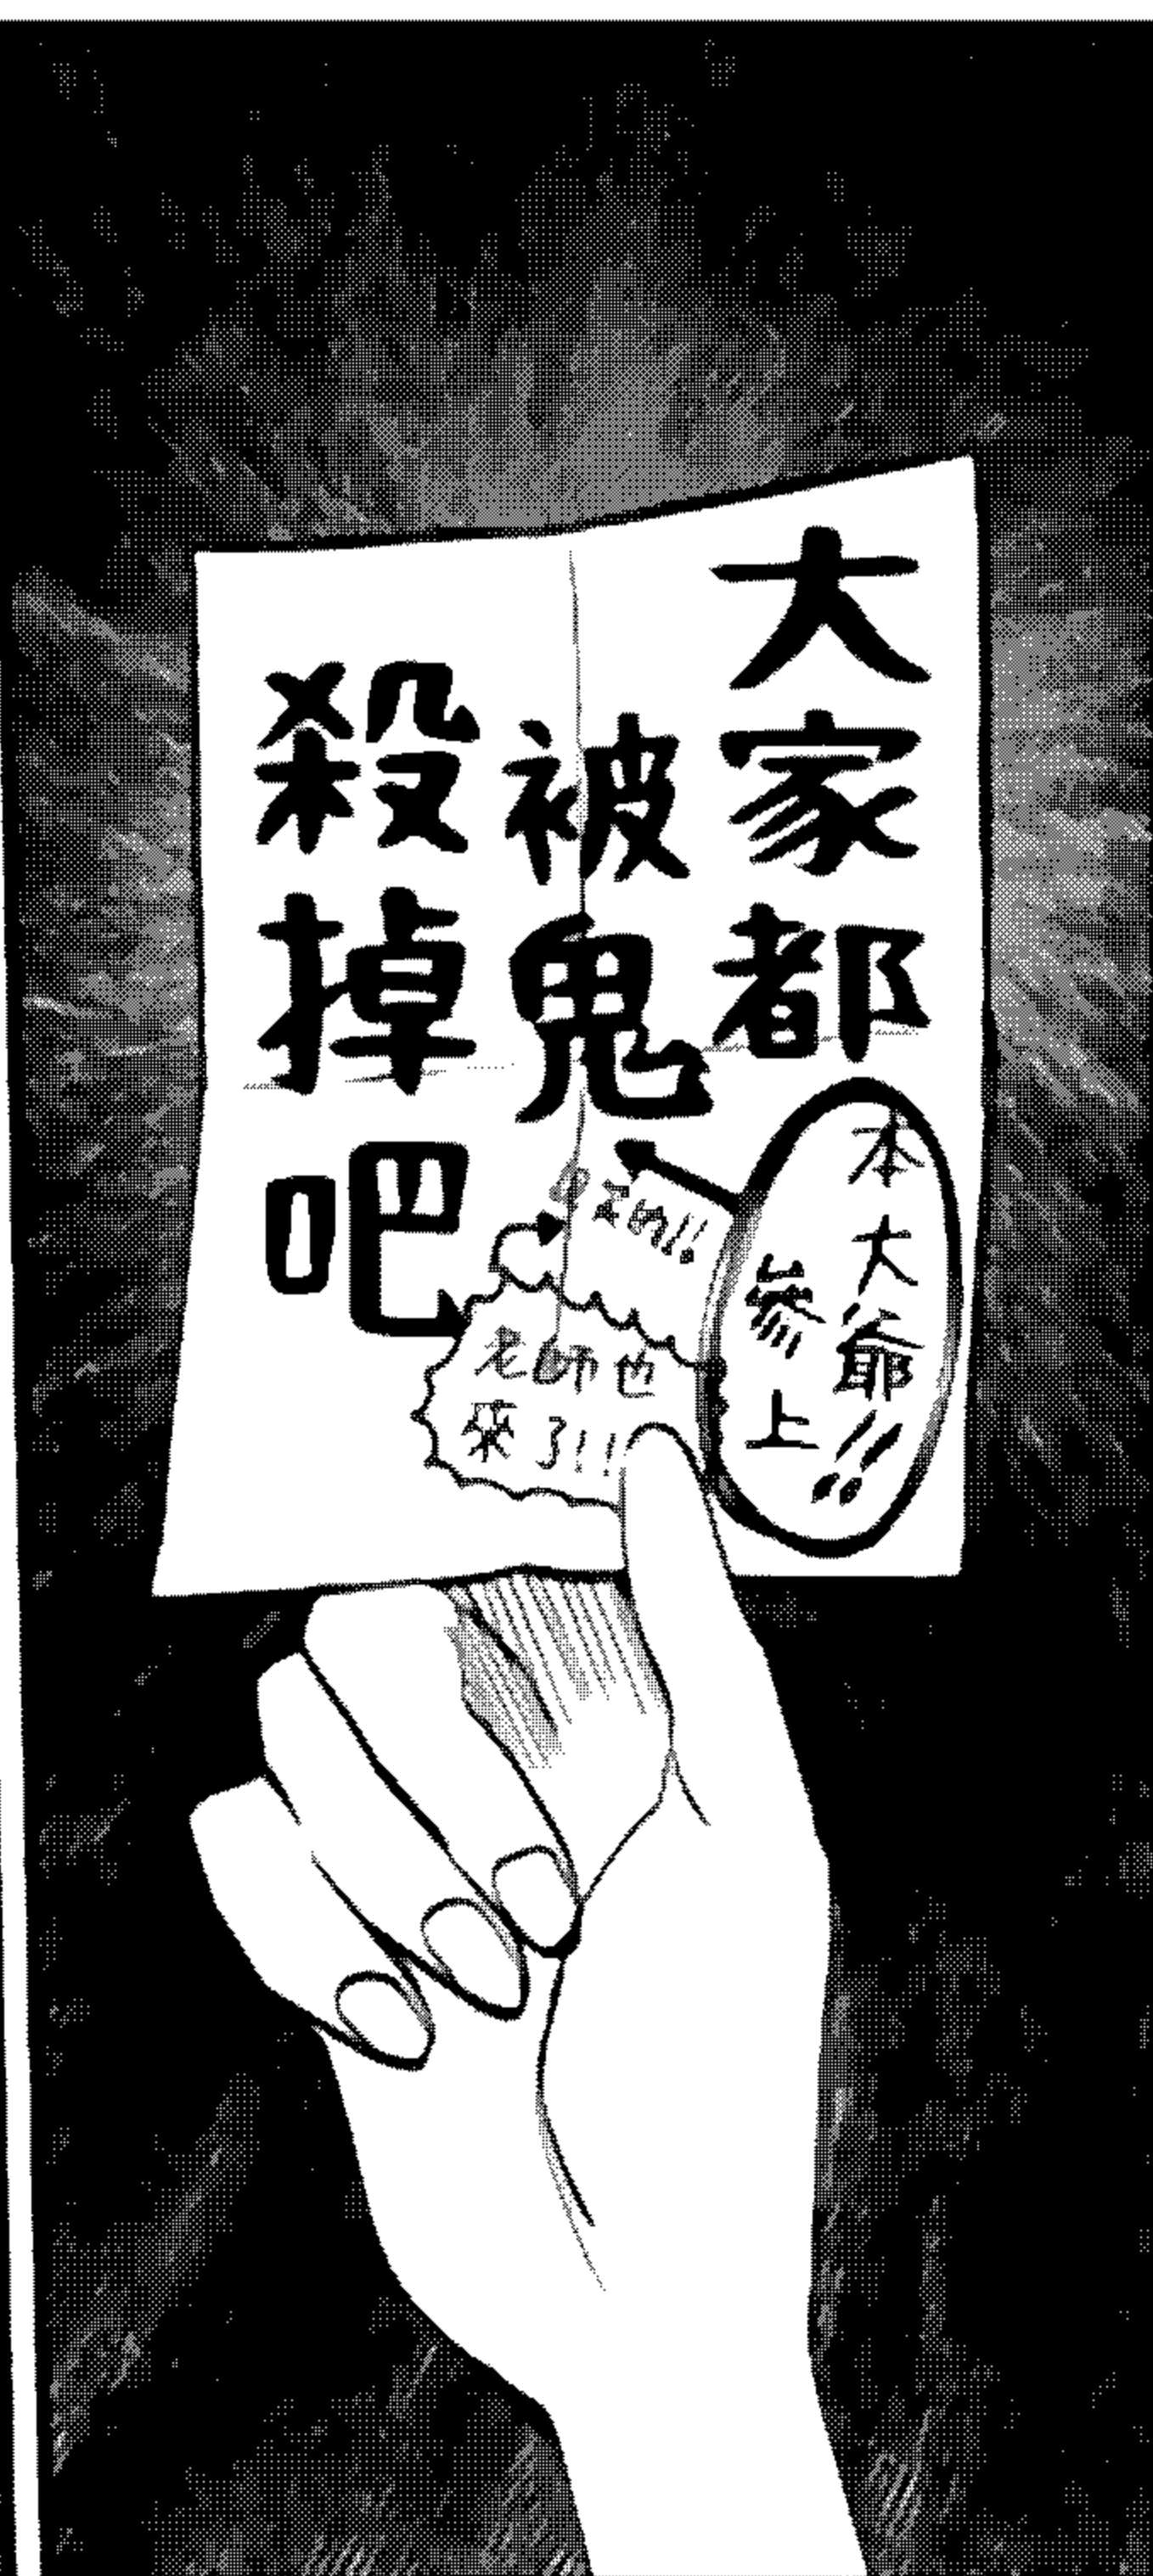 大家都
被鬼
殺掉吧
本大爺!!
參上
老師也
來了!!